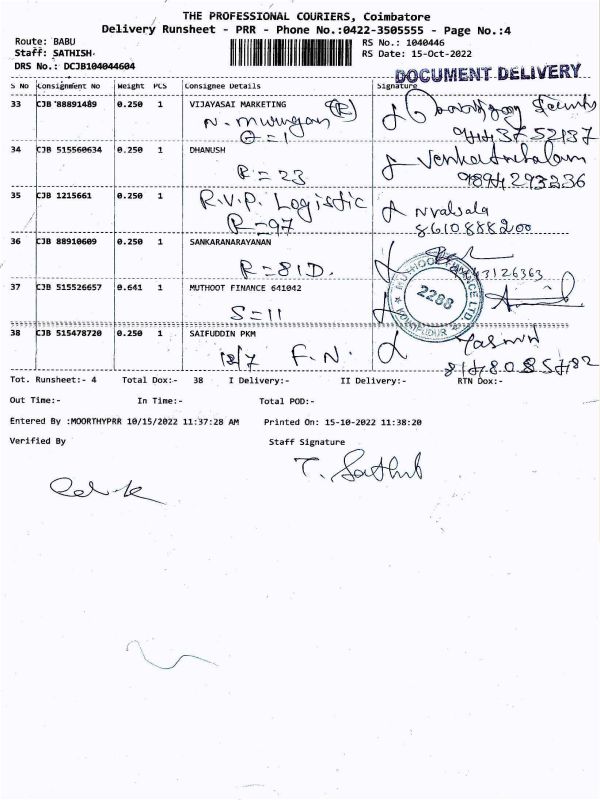 THE PROFESSIONAL COURIERS, Coimbatore
Delivery Runsheet - PRR - Phone No.:0422-3505555 - Page No.:4
Route: BABU RS No.: 1040446
Staff: SATHISH RS Date: 15-Oct-2022
DRS No.: DCJB104044604 DOCUMENT DELIVERY
S No Consignment No Weight PCS Consignee Details Signature
33 CJB 88891489 0.250 1 VIJAYASAI MARKETING
N. Murugan
34 CJB 515560634 0.250 1 DHANUSH Venkatachalam
R = 23 9894293236
35 CJB 1215661 0.250 1 R.V.P. Logistic
R = 97 8610888200
36 CJB 88910609 0.250 1 SANKARANARAYANAN
R = 81D.
37 CJB 515526657 0.641 1 MUTHOOT FINANCE 641042
S = 11
MUTHOOT FINANCE LTD
2288
38 CJB 515478720 0.250 1 SAIFUDDIN PKM
18/7 F.N.
Tot. Runsheet:- 4 Total Dox:- 38 I Delivery:- II Delivery:- RTN Dox:-
Out Time:- In Time:- Total POD:-
Entered By :MOORTHYPRR 10/15/2022 11:37:28 AM Printed On: 15-10-2022 11:38:20
Verified By Staff Signature